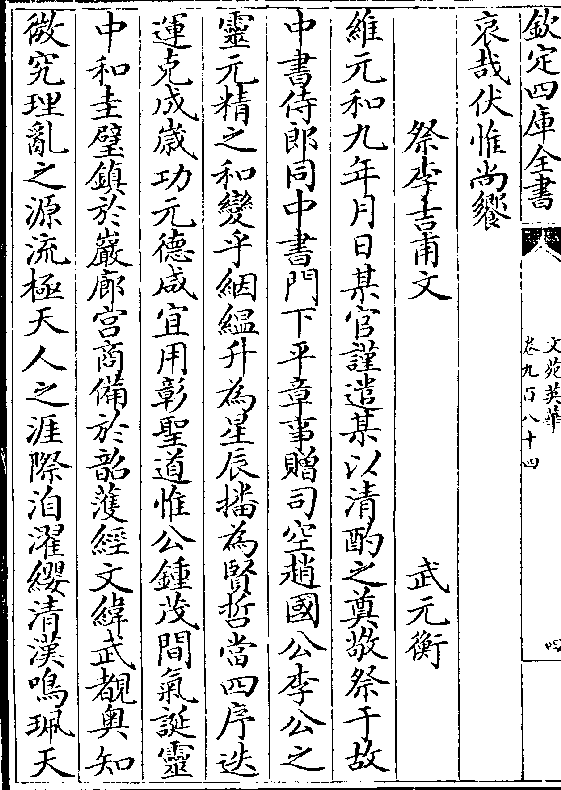 欽定四庫全書
文苑英華
卷九百八十四
哀哉伏惟尚饗
祭李吉甫文
武元衡
維元和九年月日某官謹遣某以清酌之奠敬祭于故
中書侍郎同中書門下平章事贈司空趙國公李公之
靈元精之和變乎絪縕升為星辰播為賢哲當四序迭
運克成嵗功元德咸宜用彰聖道惟公鍾茂間氣誕靈
中和圭璧鎮於巖廊宫商備於韶濩經文緯武覩奥知
微究理亂之源流極天人之涯際洎濯纓清漢鳴珮天